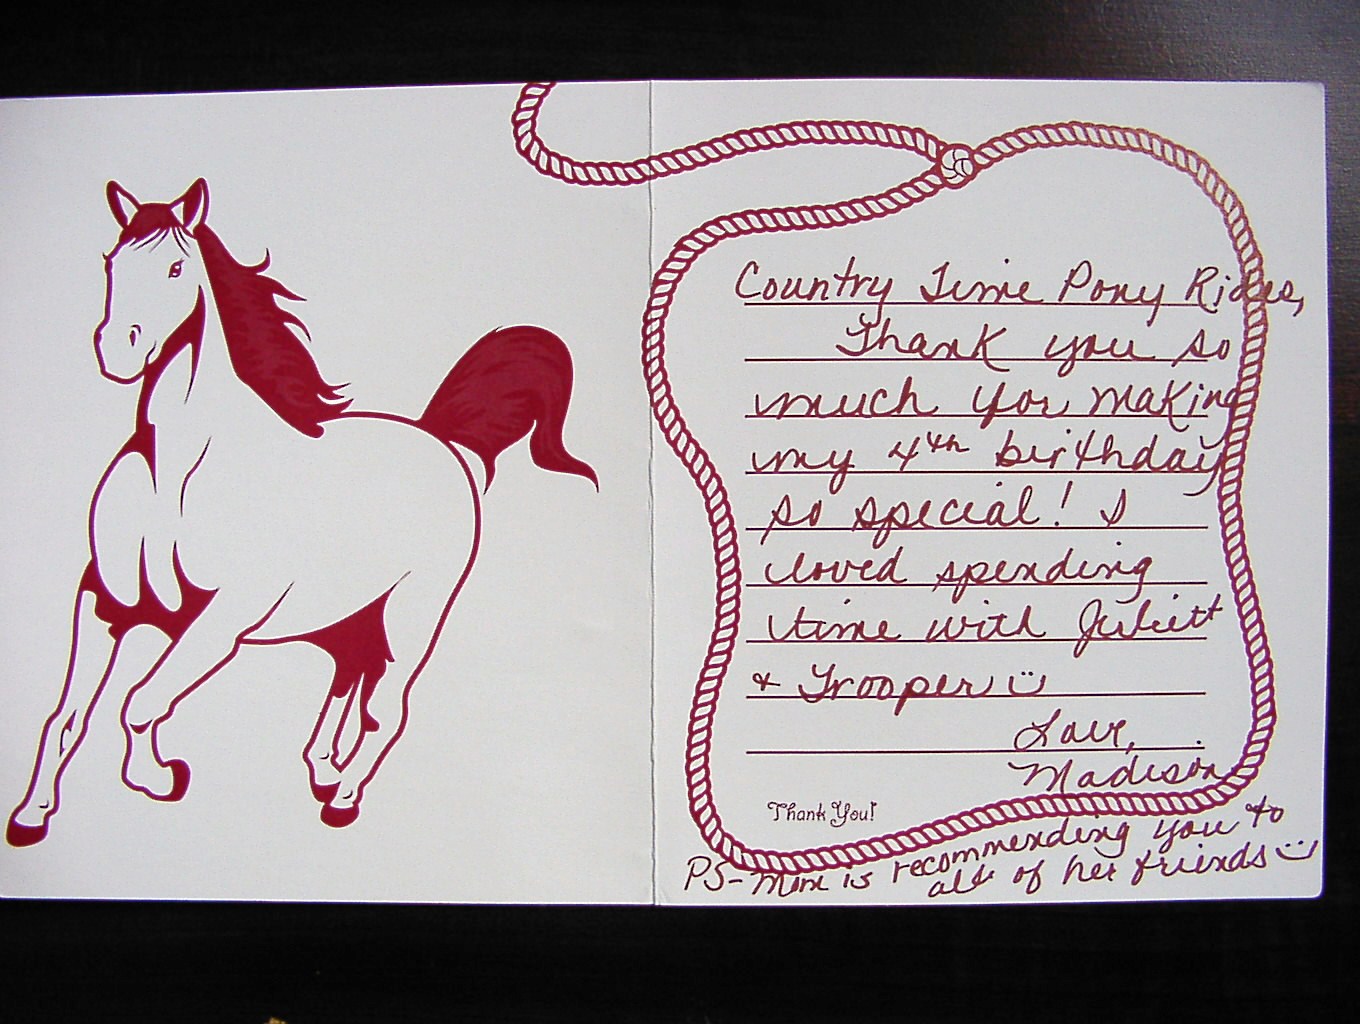 Country Time Pony Rides,
Thank you so
much for making
my 4th birthday
so special! I
loved spending
time with Juliett
& Trooper :)
Love,
Madison
Thank You!
PS- Mom is recommending you to
all of her friends :)